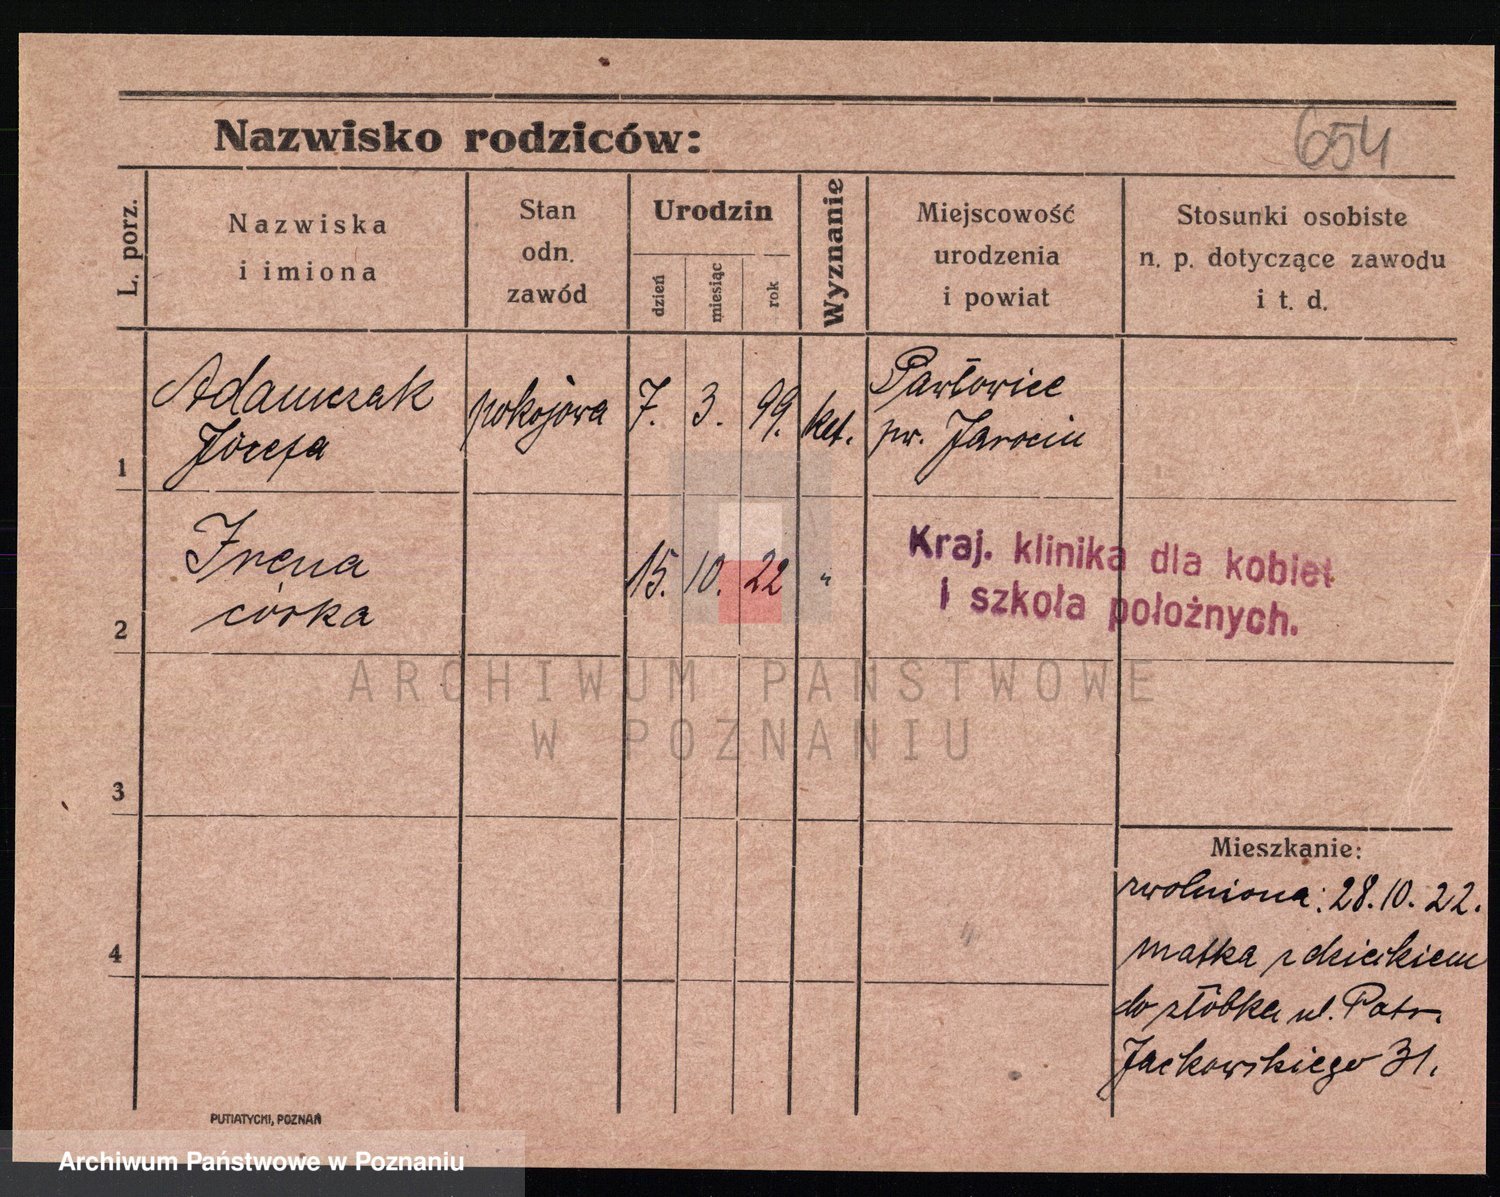 654
Nazwisko rodziców:
L. porz.
Nazwiska
i imiona
Stan
odn.
zawód
Urodzin
dzień
miesiąc
rok
Wyznanie
Miejscowość
urodzenia
i powiat
Stosunki osobiste
n. p. dotyczące zawodu
i t. d.
1
Adamczak
Józefa
pokojowa
7. 3. 99.
kat.
Pawłowice
pw. Jarocin
2
Irena
córka
15. 10. 22
"
Kraj. klinika dla kobiet
i szkoła położnych.
ARCHIWUM PAŃSTWOWE
W POZNANIU
3
4
Mieszkanie:
zwolniona: 28.10.22.
matka z dzieckiem
do żłóbka ul. Patr.
Jackowskiego 31.
PUTIATYCKI, POZNAŃ
Archiwum Państwowe w Poznaniu